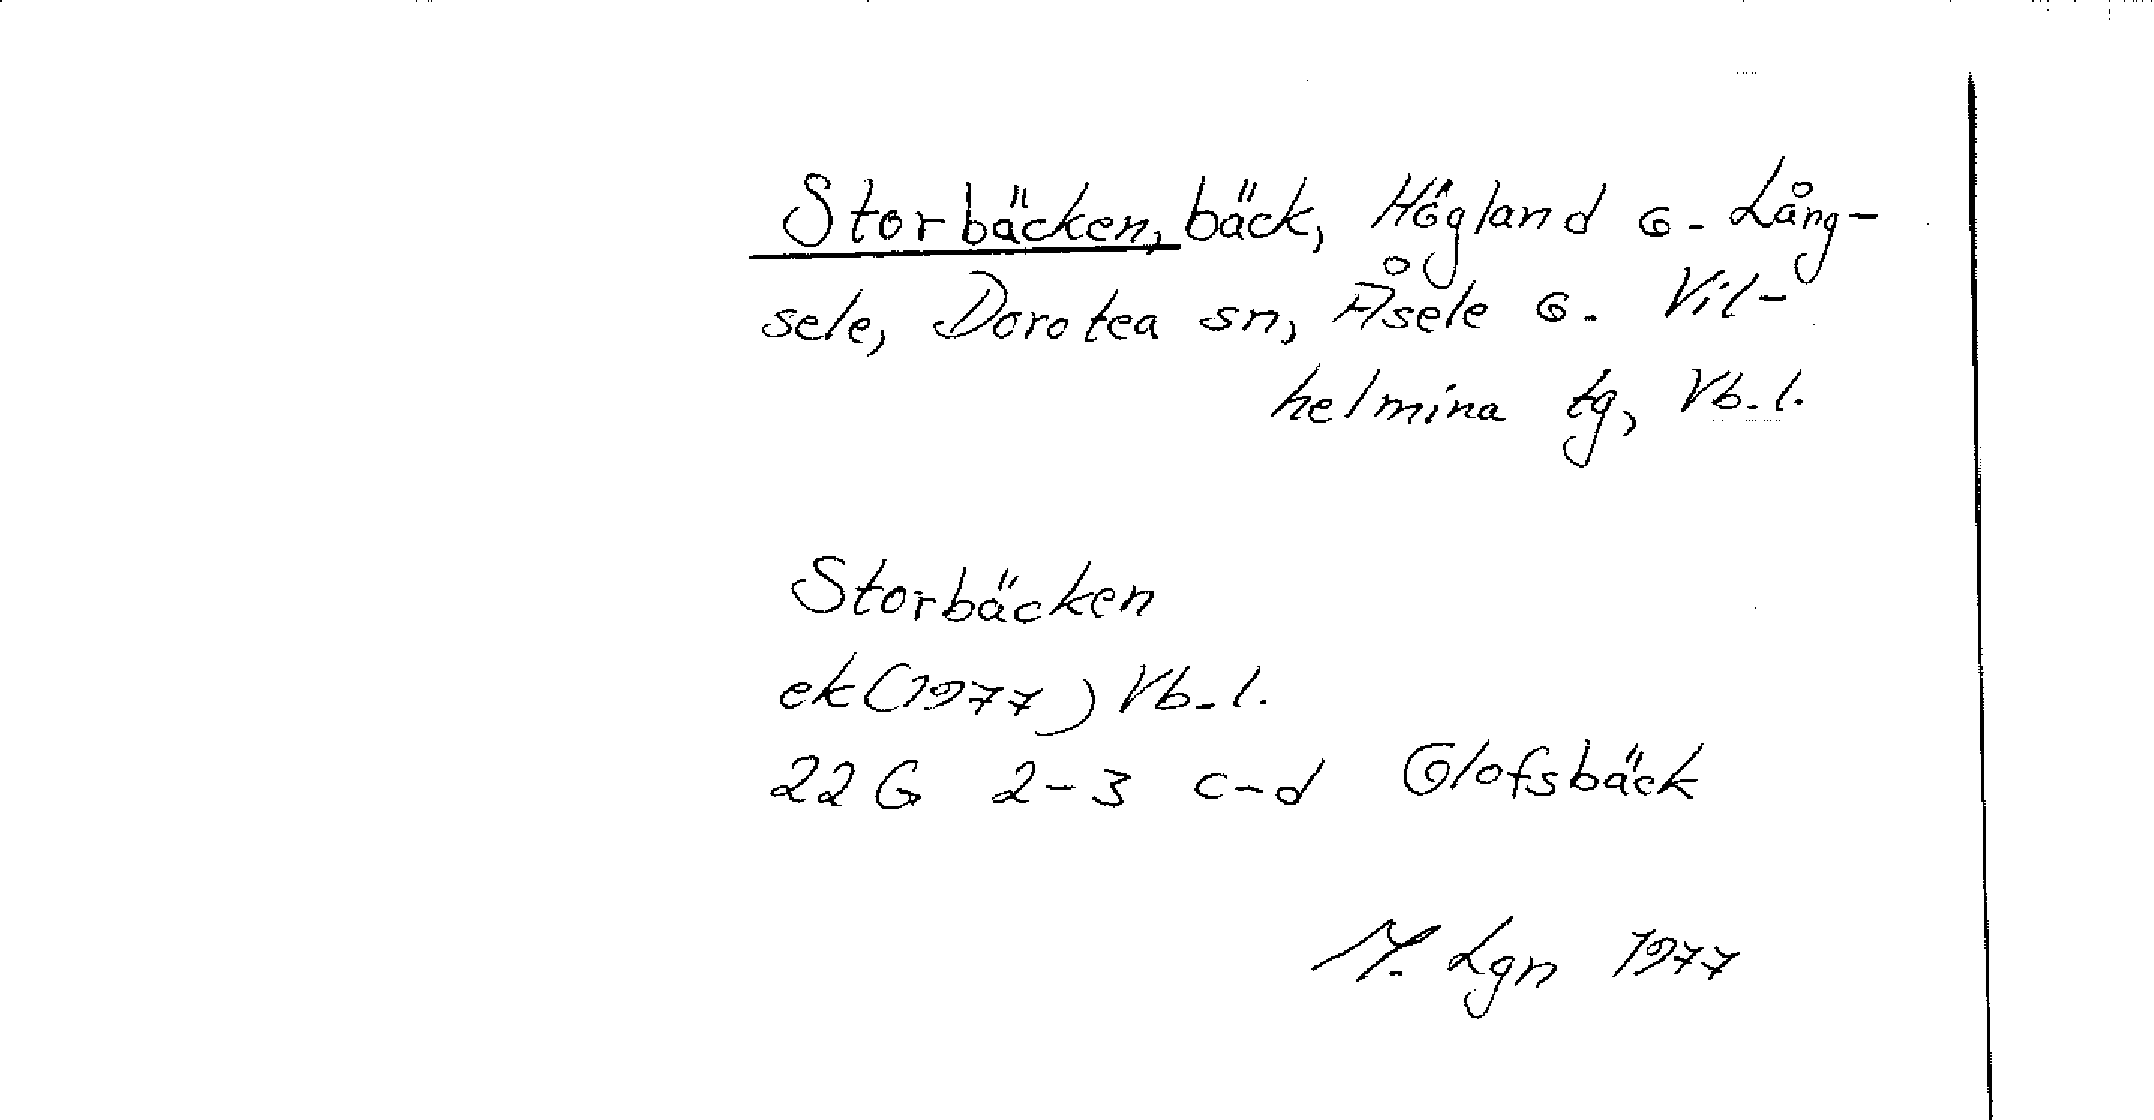 Storbäcken, bäck, Högland o. Lång-
sele, Dorotea sn, Åsele o. Vil-
helmina tg, Vb. l.
Storbäcken
ek (1977) Vb. l.
22 G 2-3 c-d Olofsbäck
M. Lgn 1977